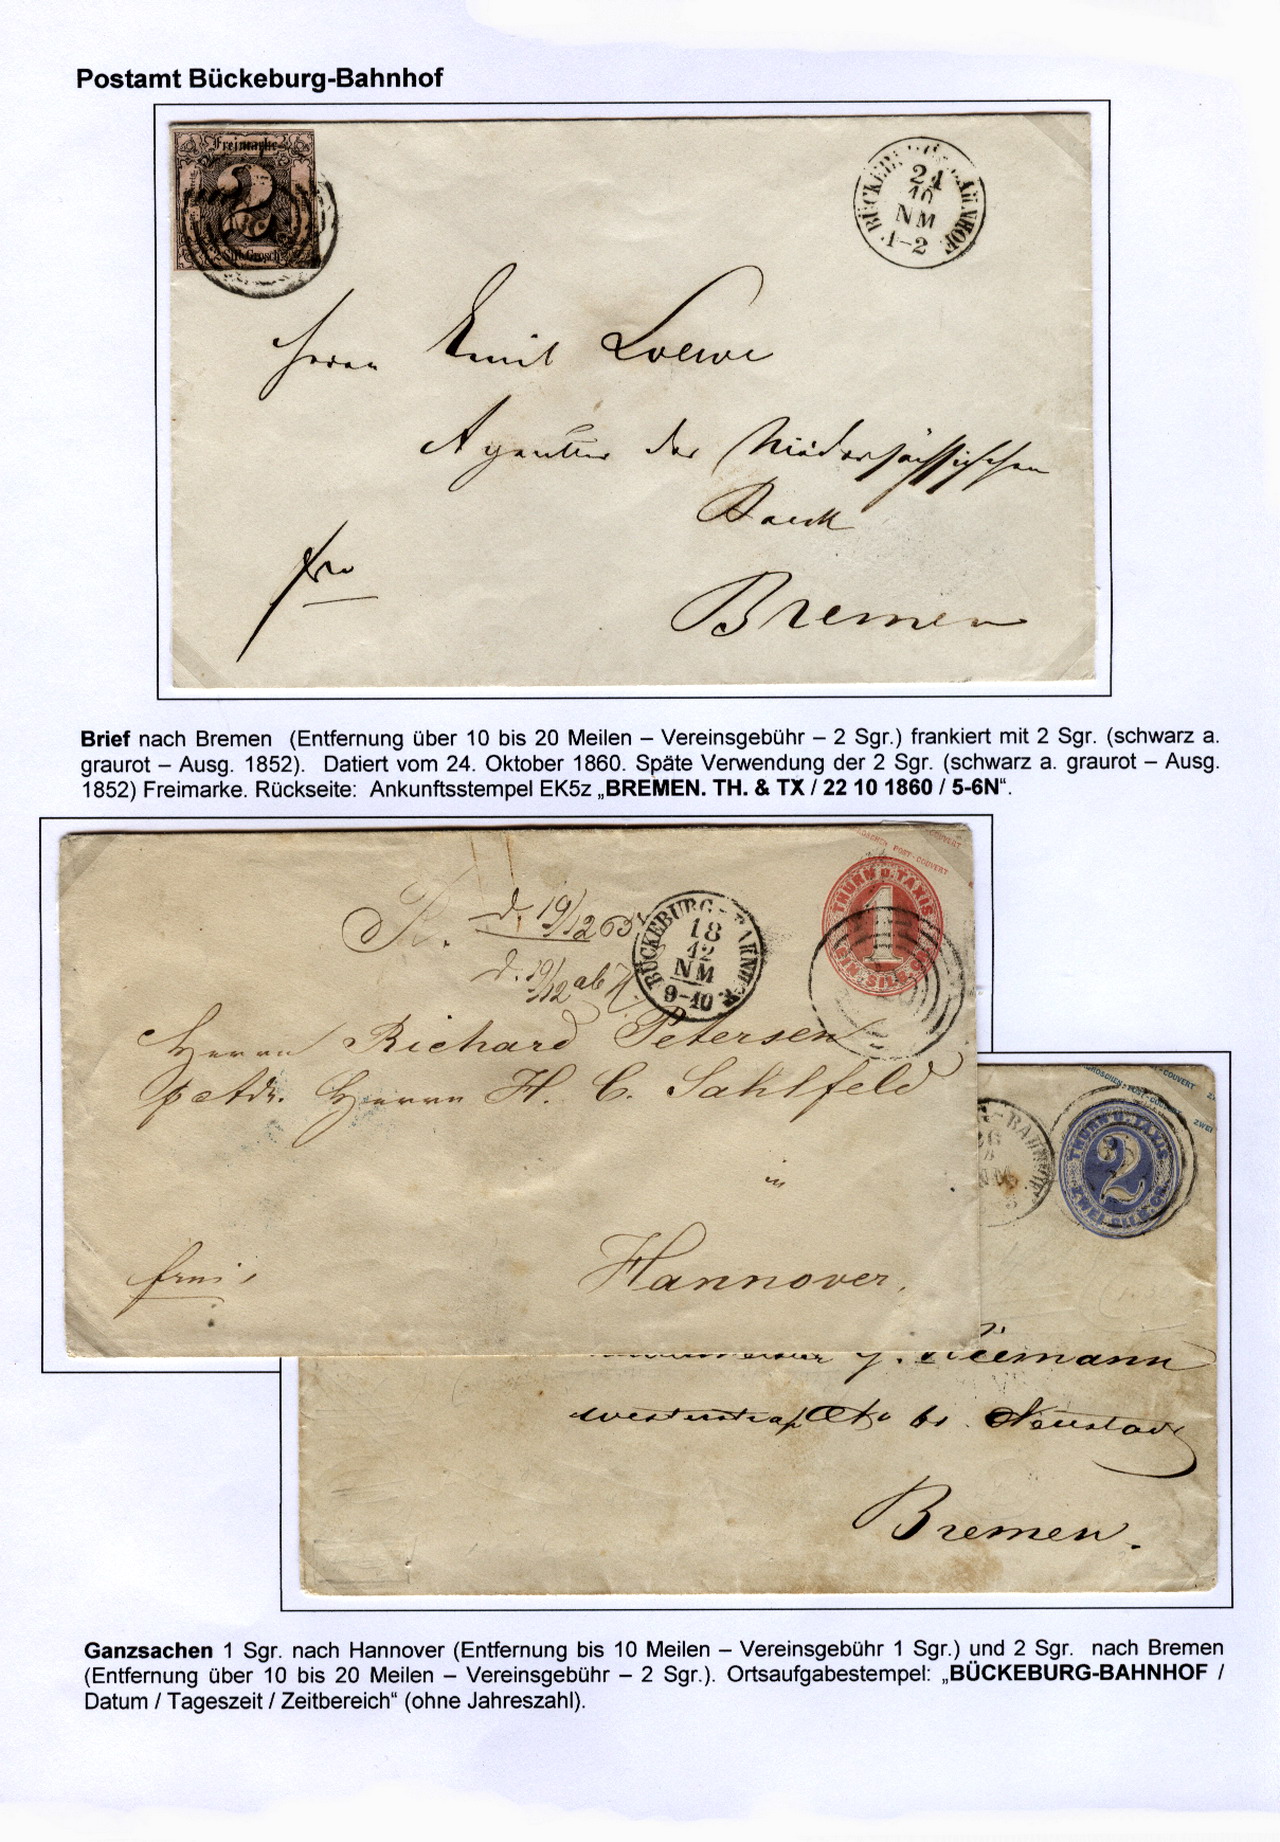 Postamt Bückeburg-Bahnhof
Freimarke
2
2 Silb. Grosch.
BÜCKEBURG-BAHNHOF
24
10
NM
1-2
Herrn Emil Loewe
Agentur der Niedersächsischen
Bank
fro
Bremen
Brief nach Bremen (Entfernung über 10 bis 20 Meilen – Vereinsgebühr – 2 Sgr.) frankiert mit 2 Sgr. (schwarz a.
graurot – Ausg. 1852). Datiert vom 24. Oktober 1860. Späte Verwendung der 2 Sgr. (schwarz a. graurot – Ausg.
1852) Freimarke. Rückseite: Ankunftsstempel EK5z „BREMEN. TH. & TX / 22 10 1860 / 5-6N“.
GROSCHEN POST-COUVERT
COUVERT
THURN U. TAXIS
1
EIN SILB. GR.
R. d. 19/12 65
d. 19/12 ab
BÜCKEBURG-BAHNHOF
18
12
NM
9-10
Herrn Richard Petersen
p Adr. Herrn H. C. Sahlfeld
in
Hannover.
frei
GROSCHEN POST-COUVERT
ZWEI
G-BAHNHOF
26
NM
THURN U. TAXIS
2
ZWEI SILB. GR.
Niemann
br. Neustadt
Bremen.
Ganzsachen 1 Sgr. nach Hannover (Entfernung bis 10 Meilen – Vereinsgebühr 1 Sgr.) und 2 Sgr. nach Bremen
(Entfernung über 10 bis 20 Meilen – Vereinsgebühr – 2 Sgr.). Ortsaufgabestempel: „BÜCKEBURG-BAHNHOF /
Datum / Tageszeit / Zeitbereich“ (ohne Jahreszahl).